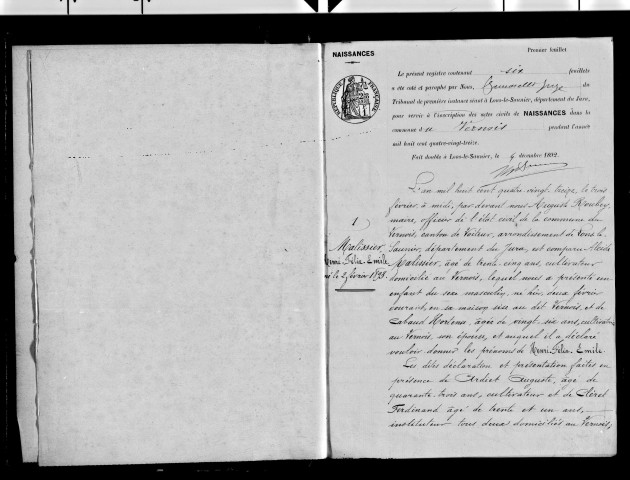 NAISSANCES
Premier feuillet
RÉPUBLIQUE FRANÇAISE
Le présent registre contenant six feuillets
a été coté et paraphé par Nous, Juge du
Tribunal de première instance séant à Lons-le-Saunier, département du Jura,
pour servir à l'inscription des actes civils de NAISSANCES dans la
commune d u Vernois pendant l'année
mil huit cent quatre-vingt-treize.
Fait double à Lons-le-Saunier, le 4 décembre 1892.
1
Malissier
Henri-Félix-Emile
né le 2 février 1893.
L'an mil huit cent quatre vingt-treize, le trois
février à midi, par devant nous Auguste
maire, officier de l'état civil de la commune du
Vernois, canton de Voiteur, arrondissement de Lons le
Saunier, département du Jura, est comparu
Malissier, âgé de trente cinq ans, cultivateur
domicilié au Vernois, lequel nous a présenté un
enfant du sexe masculin, né hier, deux février
courant, en sa maison sise au dit Vernois, et de
Cabaud Hortense, âgée de vingt-six ans, cultivatrice
au Vernois, son épouse, et auquel il a déclaré
vouloir donner les prénoms de Henri-Félix-Emile.
Les dites déclaration et présentation faites en
présence de Ardiet Auguste, âgé de
quarante-trois ans, cultivateur et de
Ferdinand âgé de trente et un ans,
instituteur tous deux domiciliés au Vernois,